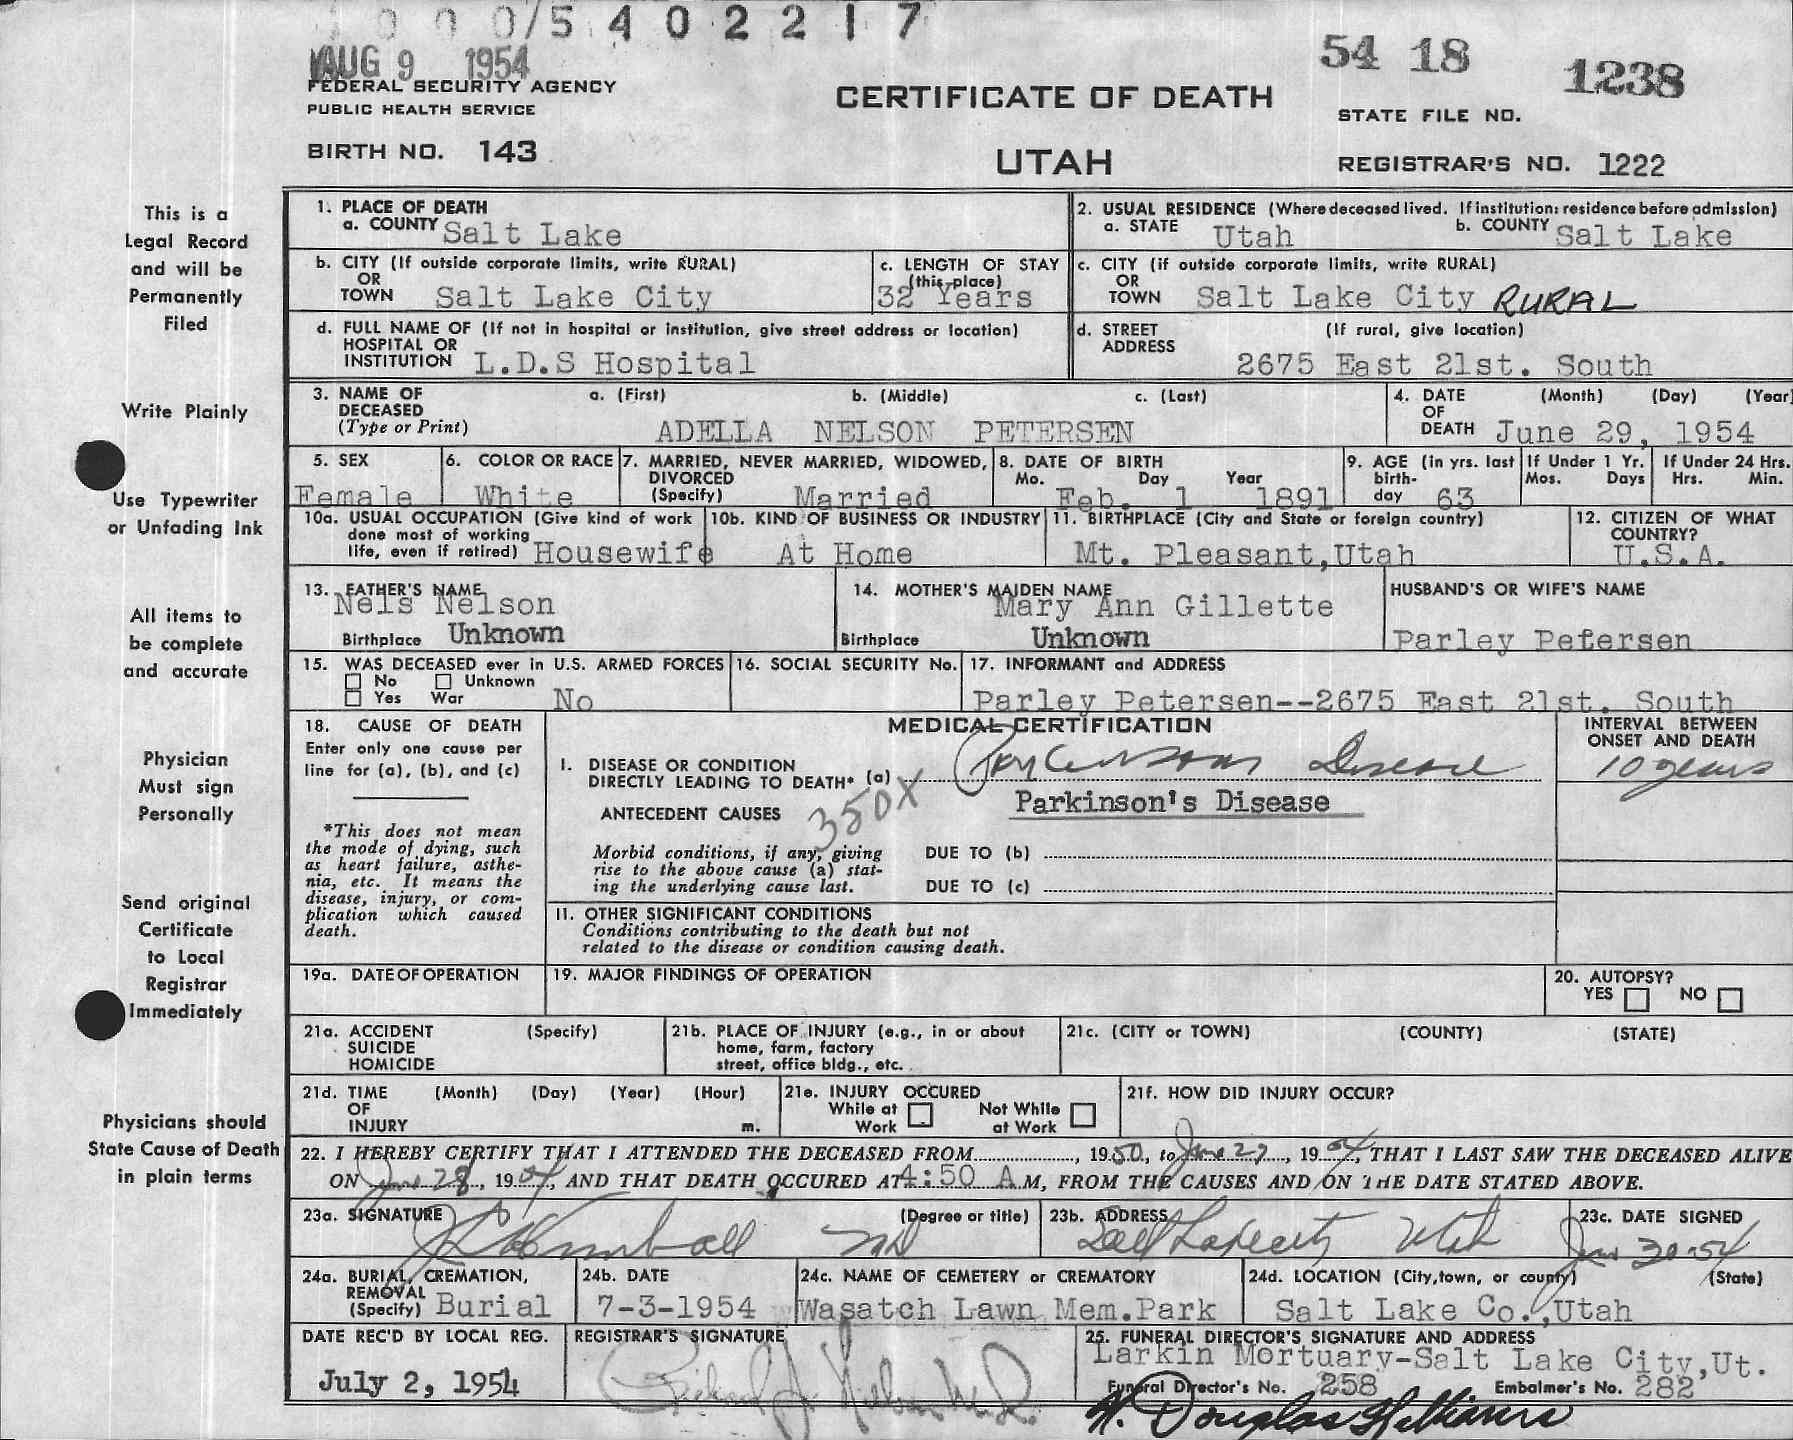 000/5 402217
AUG 9 1954
54 18 1238
FEDERAL SECURITY AGENCY
PUBLIC HEALTH SERVICE
CERTIFICATE OF DEATH
STATE FILE NO.
BIRTH NO. 143
UTAH
REGISTRAR'S NO. 1222
This is a
Legal Record
and will be
Permanently
Filed
Write Plainly
Use Typewriter
or Unfading Ink
All items to
be complete
and accurate
Physician
Must sign
Personally
Send original
Certificate
to Local
Registrar
Immediately
Physicians should
State Cause of Death
in plain terms
1. PLACE OF DEATH
a. COUNTY Salt Lake
2. USUAL RESIDENCE (Where deceased lived. If institution: residence before admission)
a. STATE Utah b. COUNTY Salt Lake
b. CITY (If outside corporate limits, write RURAL)
OR
TOWN Salt Lake City
c. LENGTH OF STAY
(this place)
32 Years
c. CITY (if outside corporate limits, write RURAL)
OR
TOWN Salt Lake City RURAL
d. FULL NAME OF (If not in hospital or institution, give street address or location)
HOSPITAL OR
INSTITUTION L.D.S Hospital
d. STREET (If rural, give location)
ADDRESS
2675 East 21st. South
3. NAME OF a. (First) b. (Middle) c. (Last)
DECEASED
(Type or Print) ADELLA NELSON PETERSEN
4. DATE (Month) (Day) (Year)
OF
DEATH June 29, 1954
5. SEX
Female
6. COLOR OR RACE
White
7. MARRIED, NEVER MARRIED, WIDOWED,
DIVORCED
(Specify) Married
8. DATE OF BIRTH
Mo. Day Year
Feb. 1 1891
9. AGE (in yrs. last
birth-
day 63
If Under 1 Yr.
Mos. Days
If Under 24 Hrs.
Hrs. Min.
10a. USUAL OCCUPATION (Give kind of work
done most of working
life, even if retired) Housewife
10b. KIND OF BUSINESS OR INDUSTRY
At Home
11. BIRTHPLACE (City and State or foreign country)
Mt. Pleasant,Utah
12. CITIZEN OF WHAT
COUNTRY?
U.S.A.
13. FATHER'S NAME
Nels Nelson
Birthplace Unknown
14. MOTHER'S MAIDEN NAME
Mary Ann Gillette
Birthplace Unknown
HUSBAND'S OR WIFE'S NAME
Parley Petersen
15. WAS DECEASED ever in U.S. ARMED FORCES
No Unknown
Yes War No
16. SOCIAL SECURITY No.
17. INFORMANT and ADDRESS
Parley Petersen--2675 East 21st. South
18. CAUSE OF DEATH
Enter only one cause per
line for (a), (b), and (c)
*This does not mean
the mode of dying, such
as heart failure, asthe-
nia, etc. It means the
disease, injury, or com-
plication which caused
death.
MEDICAL CERTIFICATION
I. DISEASE OR CONDITION
DIRECTLY LEADING TO DEATH* (a) Parkinsons Disease
Parkinson's Disease
350X
ANTECEDENT CAUSES
Morbid conditions, if any, giving
rise to the above cause (a) stat-
ing the underlying cause last.
DUE TO (b)
DUE TO (c)
INTERVAL BETWEEN
ONSET AND DEATH
10 years
II. OTHER SIGNIFICANT CONDITIONS
Conditions contributing to the death but not
related to the disease or condition causing death.
19a. DATE OF OPERATION
19. MAJOR FINDINGS OF OPERATION
20. AUTOPSY?
YES NO
21a. ACCIDENT (Specify)
SUICIDE
HOMICIDE
21b. PLACE OF INJURY (e.g., in or about
home, farm, factory
street, office bldg., etc.
21c. (CITY or TOWN) (COUNTY) (STATE)
21d. TIME (Month) (Day) (Year) (Hour)
OF
INJURY m.
21e. INJURY OCCURED
While at Work Not While at Work
21f. HOW DID INJURY OCCUR?
22. I HEREBY CERTIFY THAT I ATTENDED THE DECEASED FROM, 1950, to June 29, 1954, THAT I LAST SAW THE DECEASED ALIVE
ON June 28, 1954, AND THAT DEATH OCCURED AT 4:50 A M, FROM THE CAUSES AND ON THE DATE STATED ABOVE.
23a. SIGNATURE (Degree or title)
Kimball MD
23b. ADDRESS
Salt Lake City Utah
23c. DATE SIGNED
Jun 30-54
24a. BURIAL, CREMATION,
REMOVAL
(Specify) Burial
24b. DATE
7-3-1954
24c. NAME OF CEMETERY or CREMATORY
Wasatch Lawn Mem.Park
24d. LOCATION (City, town, or county) (State)
Salt Lake Co.,Utah
DATE REC'D BY LOCAL REG.
July 2, 1954
REGISTRAR'S SIGNATURE
25. FUNERAL DIRECTOR'S SIGNATURE AND ADDRESS
Larkin Mortuary-Salt Lake City,Ut.
Funeral Director's No. 258 Embalmer's No. 282
W. Douglas Williams